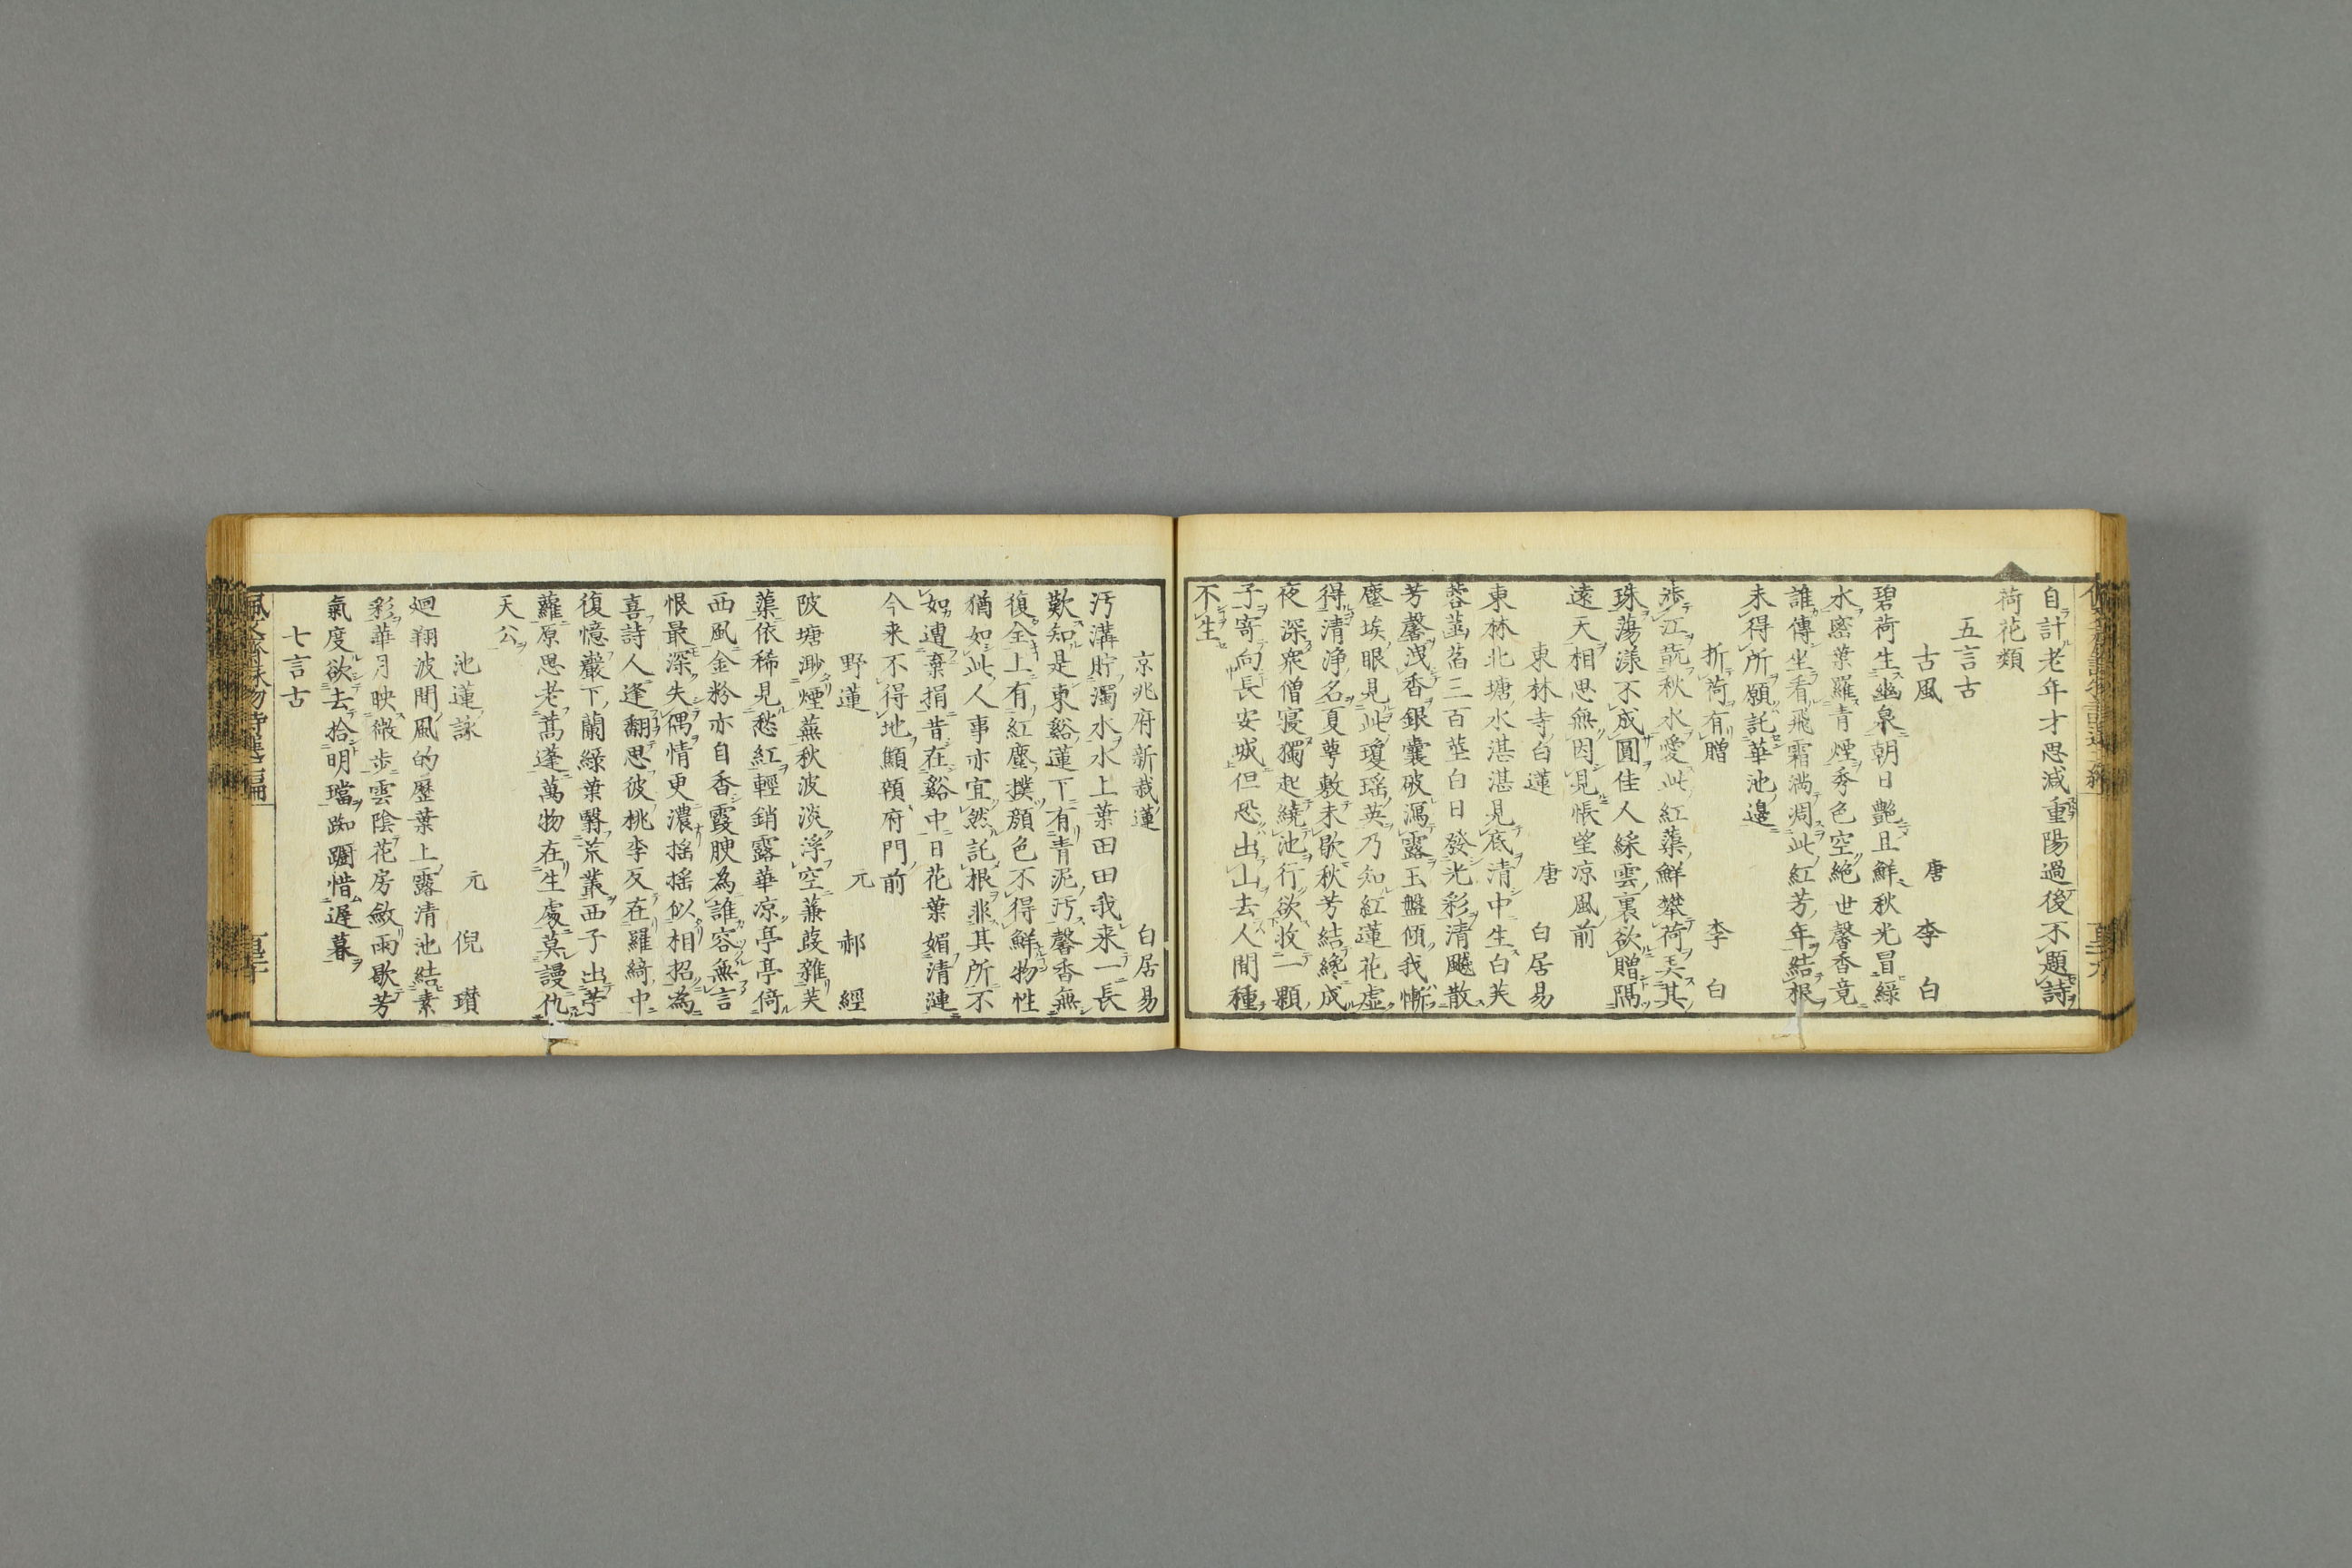 自計老年才思減重陽過後不題詩
荷花類
五言古
古風 唐 李白
碧荷生幽泉朝日艷且鮮秋光冒綠
水密葉羅青煙秀色空絕世馨香竟
誰傳坐看飛霜滿凋此紅芳年結根
未得所願託華池邊
折荷有贈 李白
涉江翫秋水愛此紅蕖鮮攀荷弄其
珠蕩漾不成圓佳人綵雲裏欲贈隔
遠天相思無因見悵望凉風前
東林寺白蓮 唐 白居易
東林北塘水湛湛見底清中生白芙
蓉菡萏三百莖白日發光彩清飈散
芳馨洩香銀囊破瀉露玉盤傾我慚
塵埃眼見此瓊瑶英乃知紅蓮花虛
得清淨名夏萼敷未歇秋芳結纔成
夜深衆僧寢獨起繞池行欲收一顆
子寄向長安城但恐出山去人間種
不生
京兆府新栽蓮 白居易
汚溝貯濁水水上葉田田我来一長
歎知是東谿蓮下有青泥汚馨香無
復全上有紅塵撲顏色不得鮮物性
猶如此人事亦宜然託根非其所不
如遭棄捐昔在谿中日花葉媚清漣
今来不得地顦顇府門前
野蓮 元 郝經
陂塘渺煙蕪秋波淡浮空蒹葭雜芙
蕖依稀見愁紅輕銷露華凉亭亭倚
西風金粉亦自香霞腴為誰容無言
恨最深失偶情更濃搖搖似相招為
喜詩人逢翻思彼桃李反在羅綺中
復憶巖下蘭綠葉翳荒叢西子出苧
蘿原思老蒿蓬萬物在生處莫謾仇
天公
池蓮詠 元 倪瓚
迴翔波間風的歷葉上露清池結素
彩華月映微步雲陰花房斂雨歇芳
氣度欲去拾明璫踟躕惜遲暮
七言古